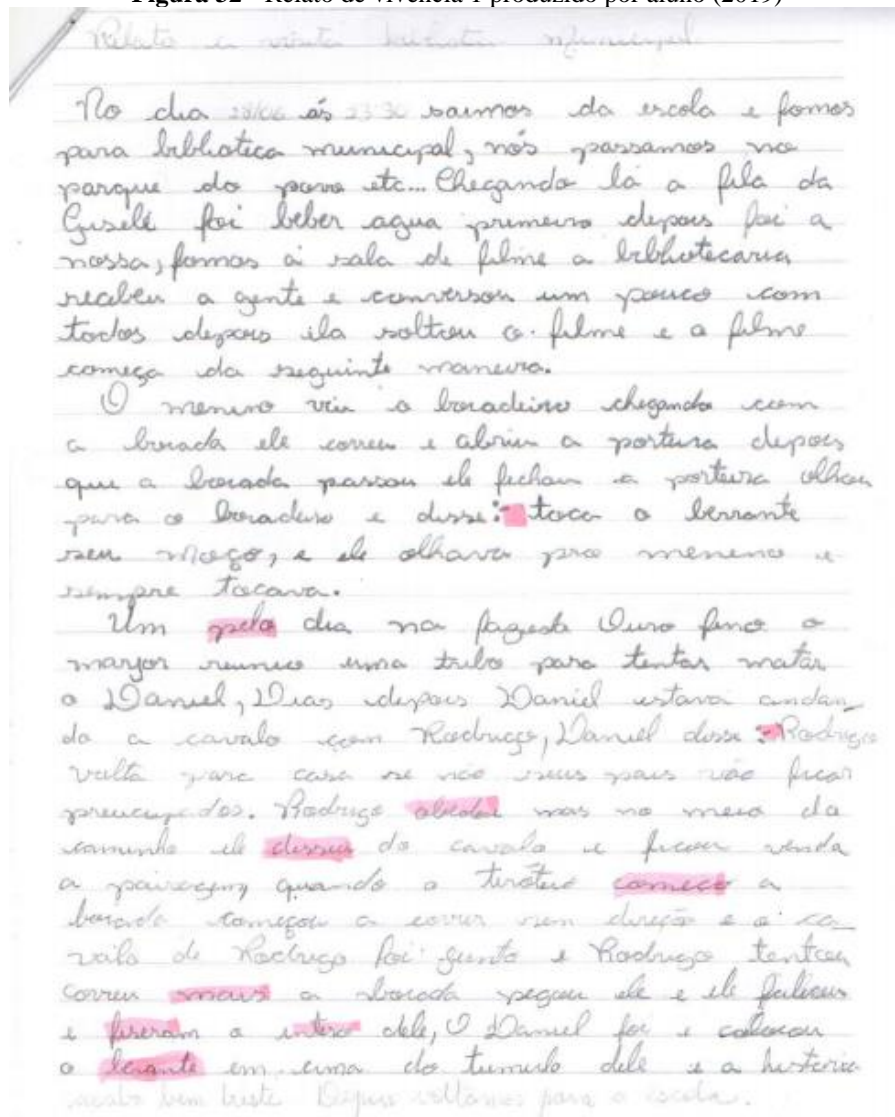 Figura 32 - Relato de vivência 1 produzido por aluno (2019)
Relato a visita municipal
No dia 28/06 ás 23:30 saimos da escola e fomos
para bibliotica municipal, nós passamos no
parque do povo etc... Chegando lá a fila da
Giselé foi beber agua primeiro depois foi a
nossa, fomos a sala de filme a bibliotecaria
recebeu a gente e conversou um pouco com
todos depois ela soltou o filme e a filme
começa da seguinte maneira.
O menino viu o boiadeiro chegando com
a boiada ele correu e abriu a porteira depois
que a boiada passou ele fechou a porteira olhou
para o boiadeiro e disse:- toca o berrante
seu moço, e ele olhava pro menino e
sempre tocava.
Um pelo dia na Ouro fino o
marjor reuniu uma tribo para tentar matar
o Daniel, Dias depois Daniel estava andan_
do a cavalo com Rodrigo, Daniel disse :-Rodrigo
volta para casa se não seus pais vão ficar
preucupados. Rodrigo mas no meio do
caminho ele desseu do cavalo e ficou vendo
a quando o começo a
boiada começou a correr sem direção e o ca_
valo de Rodrigo foi junto e Rodrigo tentou
correu mais a boiada pegou ele e ele faliceu
e fiseram o intero dele, O Daniel foi e colocou
o em cima do tumulo dele e a historia
acaba bem triste. Depois voltamos para a escola.